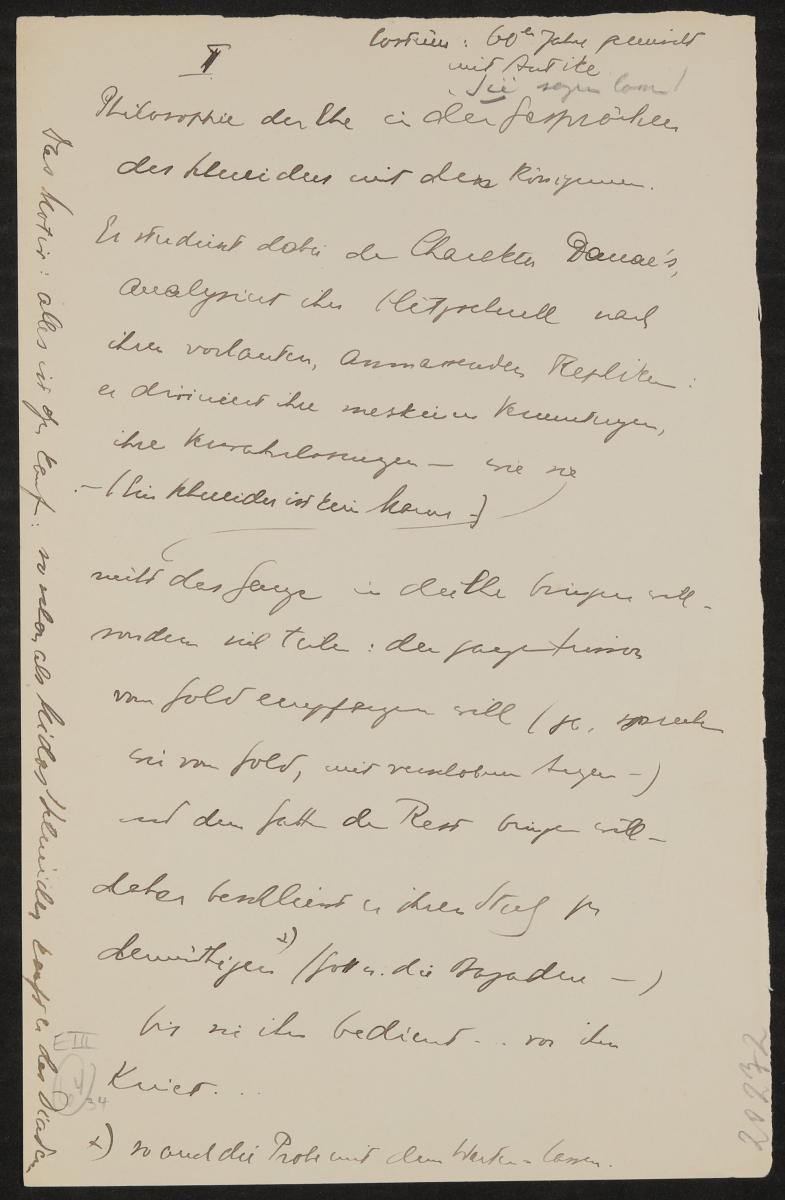 Costüm: 60er Jahre gemischt
mit Antike
II
Sie sagen
Philosophie der Ehe in den Gesprächen
des Schneiders mit den Königinnen.
Er studiert dabei den Charakter Danae's,
analysiert ihn blitzschnell nach
ihren vorlauten, anmassenden Repliken:
er diviniert ihre meskinen
ihre – wie sie
– (Ein Schneider ist kein Mann –)
nicht das Ganze in die Ehe bringen will –
sondern viel Teile: den ganzen Frisson
vom Gold empfangen will (ja, sprechen
wir von Gold, mit verschobenen Augen –)
und dem Gatten den Rest bringen will –
daher beschliesst er ihren Stolz zu
demüthigen x) (Gott u. die Bajadere –)
bis sie ihn bedient... vor ihm
Kniet...
x) so auch die Probe mit dem Warten-lassen.
Das Motiv: alles ist zu Kauf: so schon, als Midas Schneider kauft er das Diadem
E III
34
20272